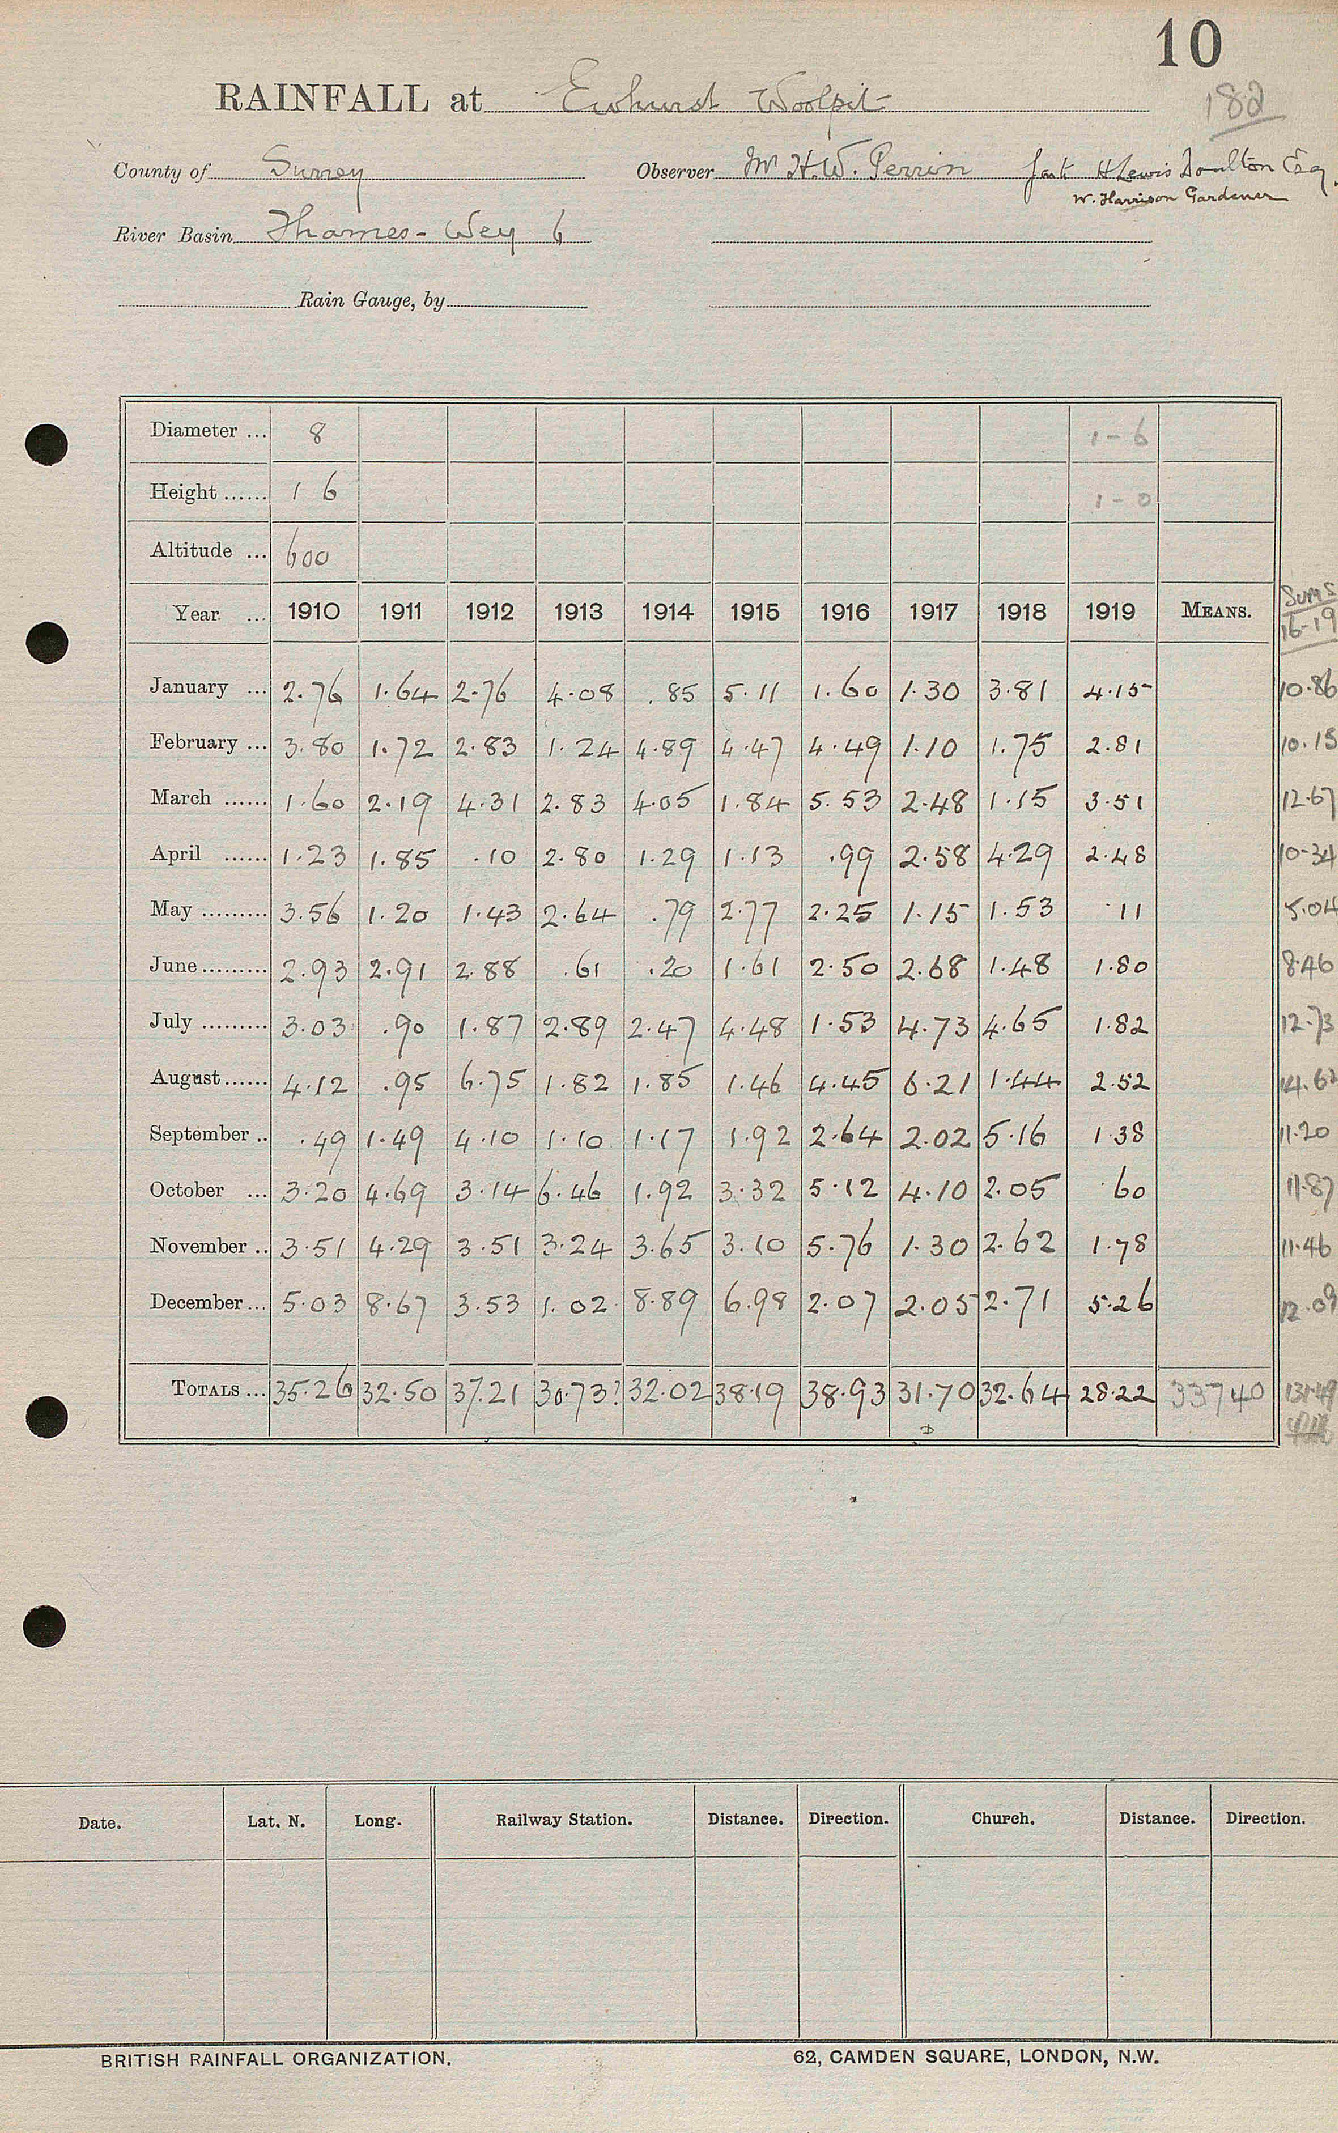 10
RAINFALL at Ewhurst Woolpit
182
County of Surrey Observer Mr H.W. Perrin for H Lewis Doulton Esq.
W. Harrison Gardener
River Basin Thames - Wey 6
Rain Gauge, by
Diameter ... 8 1-6
Height ...... 1 6 1-0
Altitude ... 600
Year ... 1910 1911 1912 1913 1914 1915 1916 1917 1918 1919 MEANS. Sums 16-19
January ... 2.76 1.64 2.76 4.08 .85 5.11 1.60 1.30 3.81 4.15 10.86
February ... 3.80 1.72 2.83 1.24 4.89 4.47 4.49 1.10 1.75 2.81 10.15
March ...... 1.60 2.19 4.31 2.83 4.05 1.84 5.53 2.48 1.15 3.51 12.67
April ...... 1.23 1.85 .10 2.80 1.29 1.13 .99 2.58 4.29 2.48 10.34
May ......... 3.56 1.20 1.43 2.64 .79 2.77 2.25 1.15 1.53 .11 5.04
June ......... 2.93 2.91 2.88 .61 .20 1.61 2.50 2.68 1.48 1.80 8.46
July ......... 3.03 .90 1.87 2.89 2.47 4.48 1.53 4.73 4.65 1.82 12.73
August ...... 4.12 .95 6.75 1.82 1.85 1.46 4.45 6.21 1.44 2.52 14.62
September .. .49 1.49 4.10 1.10 1.17 1.92 2.64 2.02 5.16 1.38 11.20
October ... 3.20 4.69 3.14 6.46 1.92 3.32 5.12 4.10 2.05 .60 11.87
November .. 3.51 4.29 3.51 3.24 3.65 3.10 5.76 1.30 2.62 1.78 11.46
December ... 5.03 8.67 3.53 1.02 8.89 6.98 2.07 2.05 2.71 5.26 12.09
TOTALS ... 35.26 32.50 37.21 30.73? 32.02 38.19 38.93 31.70 32.64 28.22 33740 131.49
Date. Lat. N. Long. Railway Station. Distance. Direction. Church. Distance. Direction.
BRITISH RAINFALL ORGANIZATION. 62, CAMDEN SQUARE, LONDON, N.W.